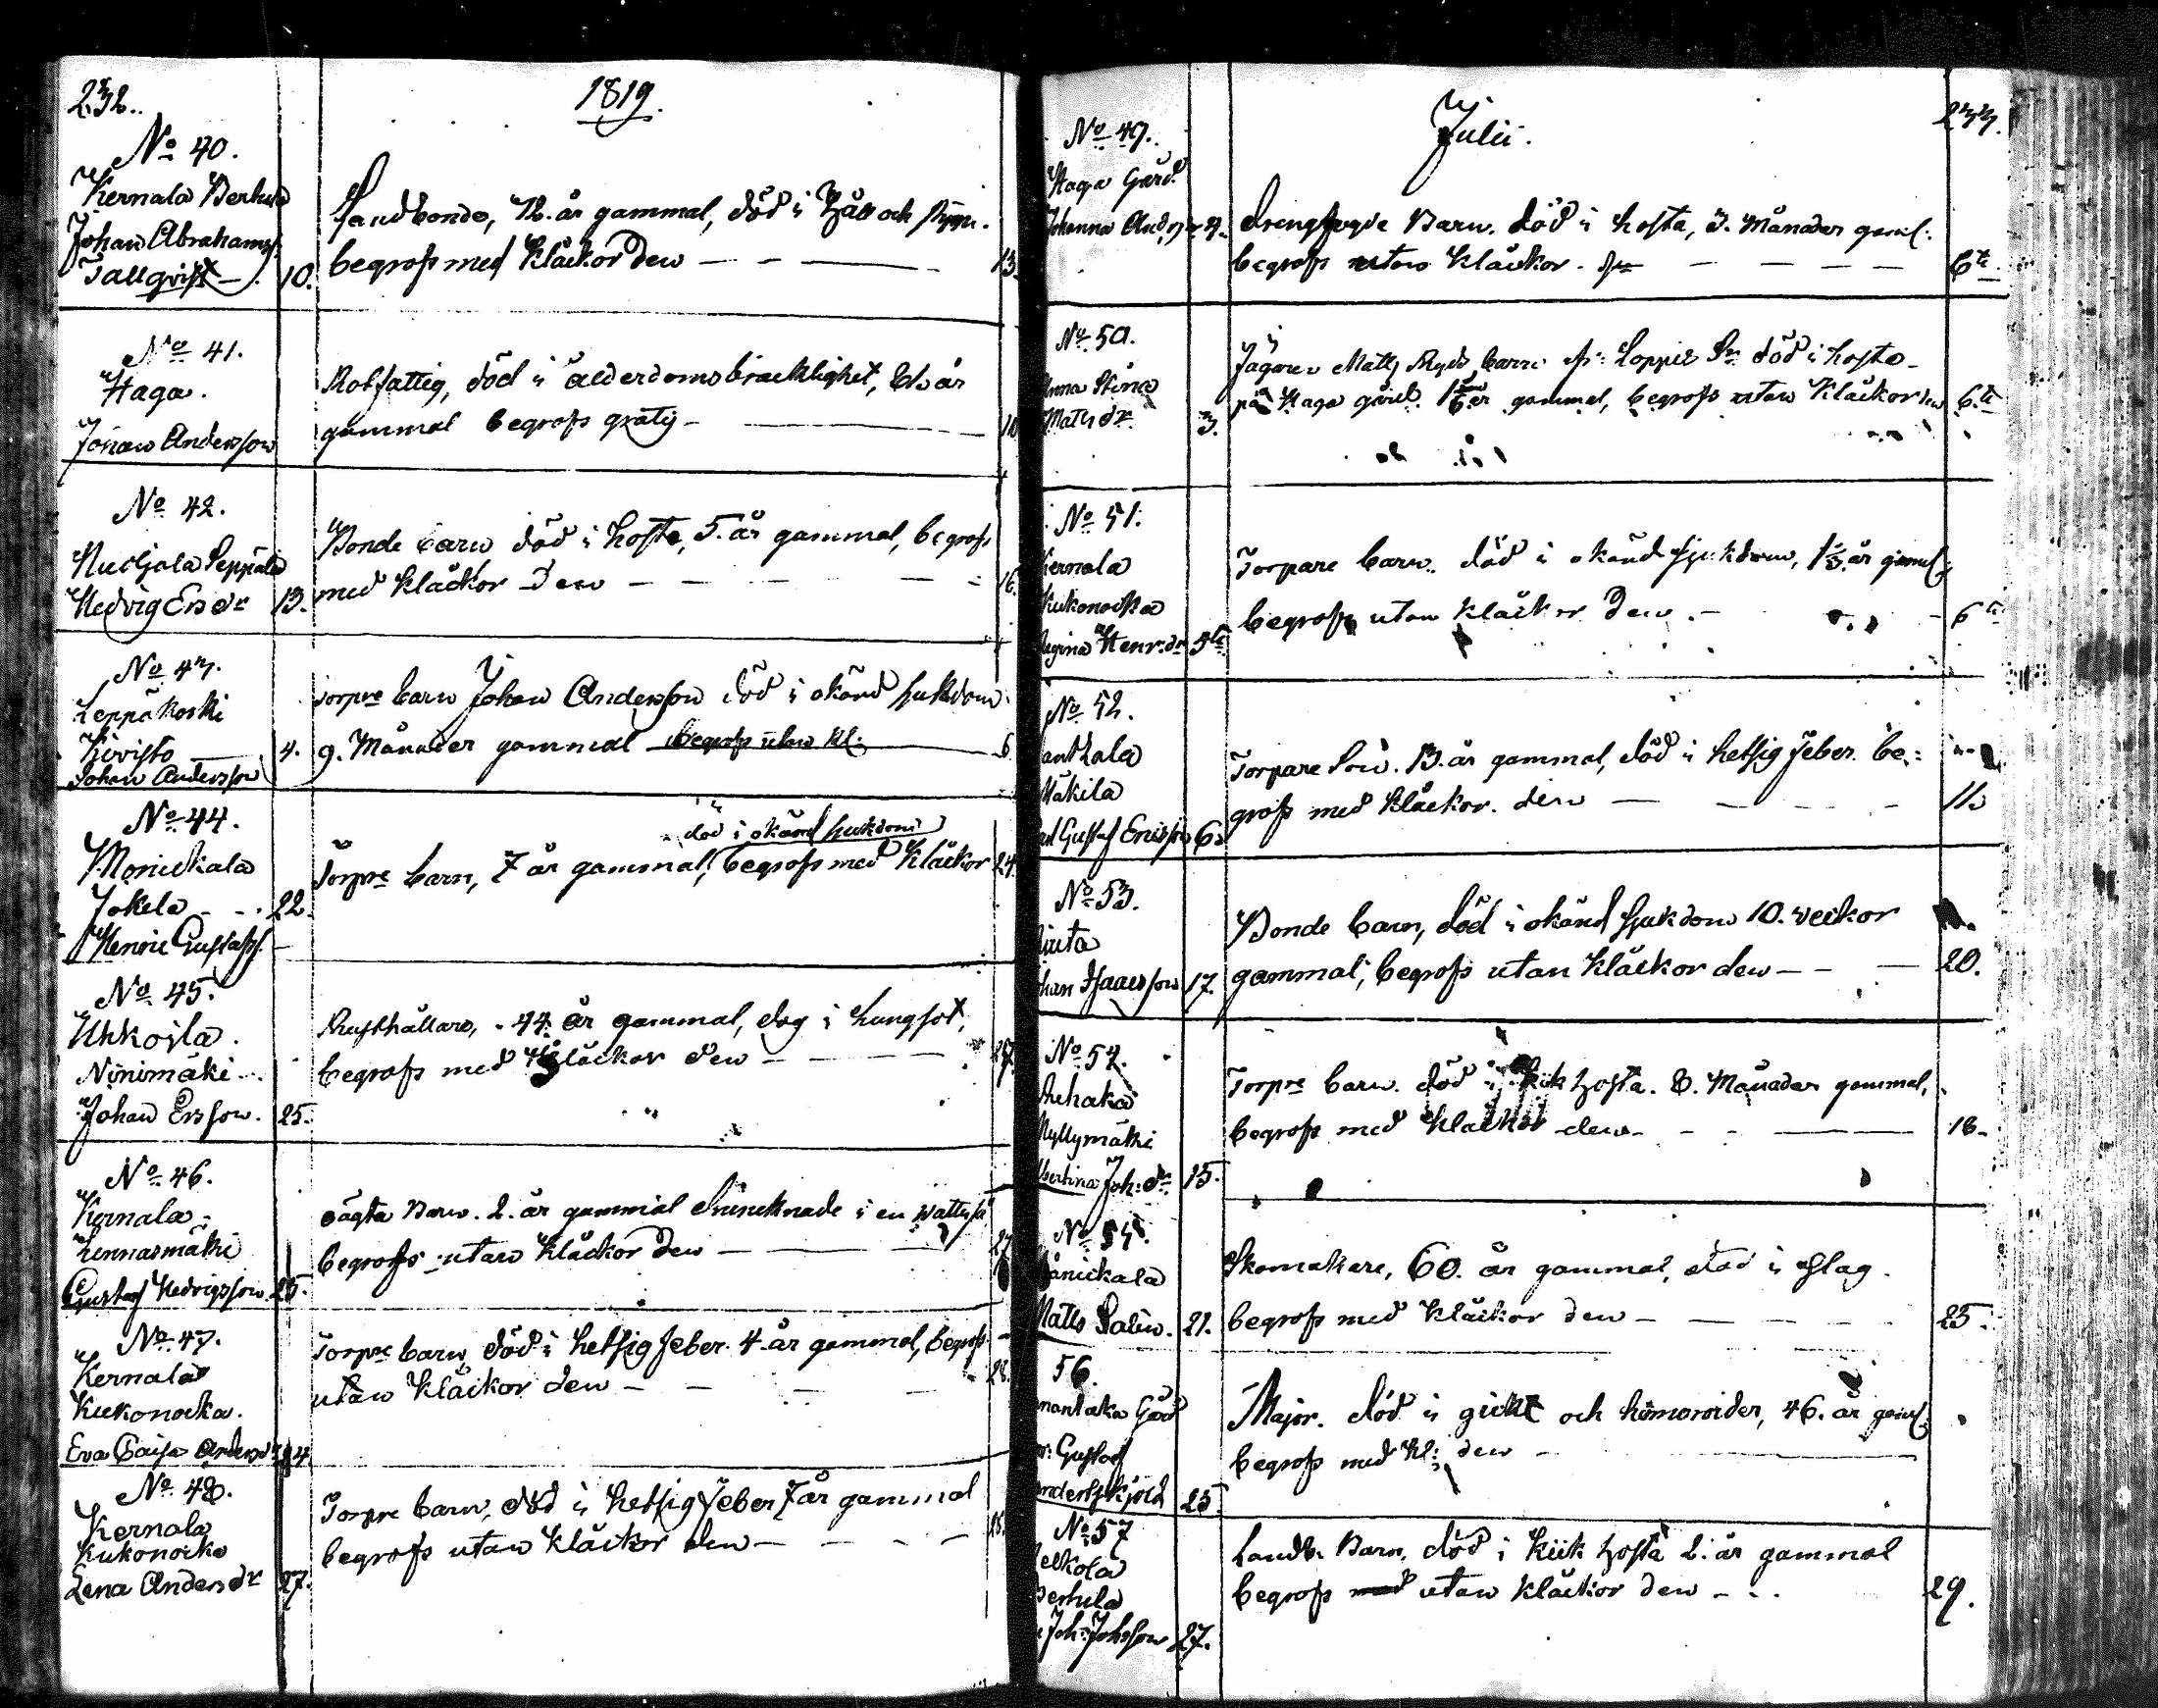 232.
1819.
No 40.
Kernala Berkula
Johan Abrahamss.
Tallqvist 10.
Landbonde, 72. år gammal, död i håll och styng.
begrofs med Kläckor den 13.
No 41.
Haga.
Johan Andersson
Rotfattig, död i ålderdoms bräcklighet, år
gammal begrofs gratis
No 42.
Nuckjala Seppälä
Hedvig Ersdr 13.
Bonde barn död i hosta, 5. år gammal, begrofs
med Kläckor den 16.
No 43.
Leppäkoski
Kivisto 4.
Johan Andersson
Torpre barn Johan Andersson död i okänd sjukdom
9. Månader gammal begrofs utan Kl: 6.
No 44.
Monickala
Jokela 22.
Henric Gustafss.
död i okänd sjukdom
Torpre barn, 7 år gammal, begrofs med Kläckor 24.
No 45.
Uhkoila.
Ninimäki
Johan Ersson. 25.
Rusthållare, 44. år gammal, dog i Lungsot,
begrofs med Kläckor den 27.
No 46.
Kernala
Linnasmäki
Gustaf Hedvigsson. 25.
oägta Barn. 2. år gammal drunknade i en
begrofs utan Kläckor den 27
No 47.
Kernala
Kukonoska.
Eva Caisa Andersdr 24.
Torpre barn, död i hetsig feber. 4. år gammal, begrofs
utan Kläckor den 28.
No 48.
Kernala
Kukonoska
Lena Andersdr 27.
Torpre barn, död i hetsig feber 7 år gammal
begrofs utan Kläckor den 28.
Julii.
233.
No 49.
Haga Gård
Johanna
Drengfogde Barn. död i hosta, 3. Månader gamal:
begrofs utan Kläckor. 6te
No 50.
Anna Stina
Matsdr 3.
Jägaren Matts Ryds barn fr: Loppis Sn död i hosta
på Haga gård. år gammal, begrofs utan Kläckor den 6.te
No 51.
Kernala
Kukonoska
Regina Henr:dr 5te
Torpare barn. död i okänd sjukdom, år gamal:
begrofs utan Kläckor den 6te
No 52.
Mäkilä
Gustaf Ericsson 6.
Torpare Son. 13. år gammal, död i hetsig feber. be:
grofs med Kläckor. den 11.
No 53.
Johan Isaacsson 17.
Bonde barn, död i okänd sjukdom 10. veckor
gammal, begrofs utan Kläckor den 20.
No 54.
Myllymäki
Albertina Joh: dr 15.
Torpre barn. död i Kik hosta. 8. Månader gammal,
begrofs med Kläckor den 18.
No 55.
Månickala
Matts Palin. 21.
Skomakare, 60. år gammal, död i slag.
begrofs med Kläckor den 25.
56.
Gård
Gustaf
25.
Major. död i gickt och hämoroider, 46. år gamal:
begrofs med Kl: den
No 57
Melkola
Perhula
Joh: Johsson 27.
Landb. Barn. död i Kiik hosta 2. år gammal
begrofs med utan Kläckor den 29.